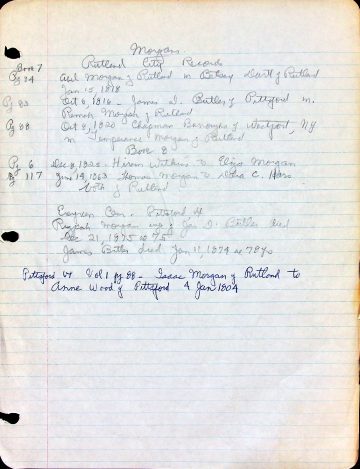 Morgan
Rutland City Records
Book 7
Pg 24 Asel Morgan of Rutland m Betsey Dart of Rutland
Jan 15, 1818
Pg 83 Oct 6, 1816 - James D. Butler of Pittsford m.
Morgan of Rutland
Pg 88 Oct 8, 1820 Chapman of , NY
m Temperance Morgan of Rutland
Book 8
Pg 6 Dec 9 1825 - Hiram Watkins to Eliza Morgan
Pg 117 Jan 14, 1863 Thomas Morgan to C.
both of Rutland
Cem. - Pittsford Vt
Morgan wife of Jas D. Butler died
Dec 21, 1875 ae 75
James Butler died Jan 11, 1874 ae 78 yrs
Pittsford Vt Vol 1 pg 88 - Isaac Morgan of Rutland to
Anne Wood of Pittsford 4 Jan 1804